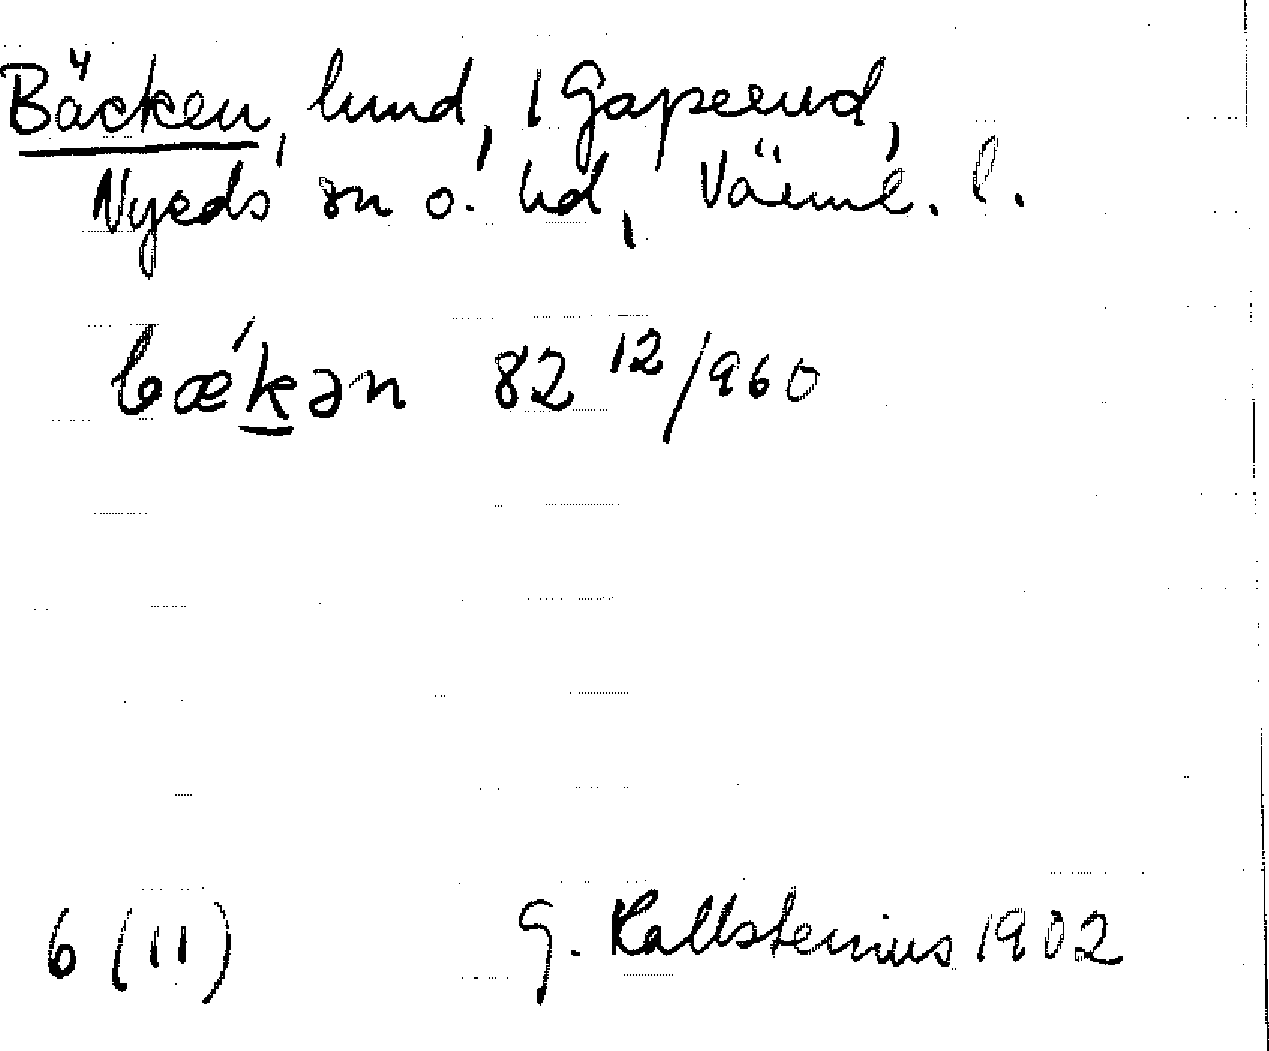 Bäcken, lund, 1 Gapeerud,
Nyeds sn o. hd, Värml. l.
bǽk̲ən 82 12/960
6 (11) G. Kallstenius 1902